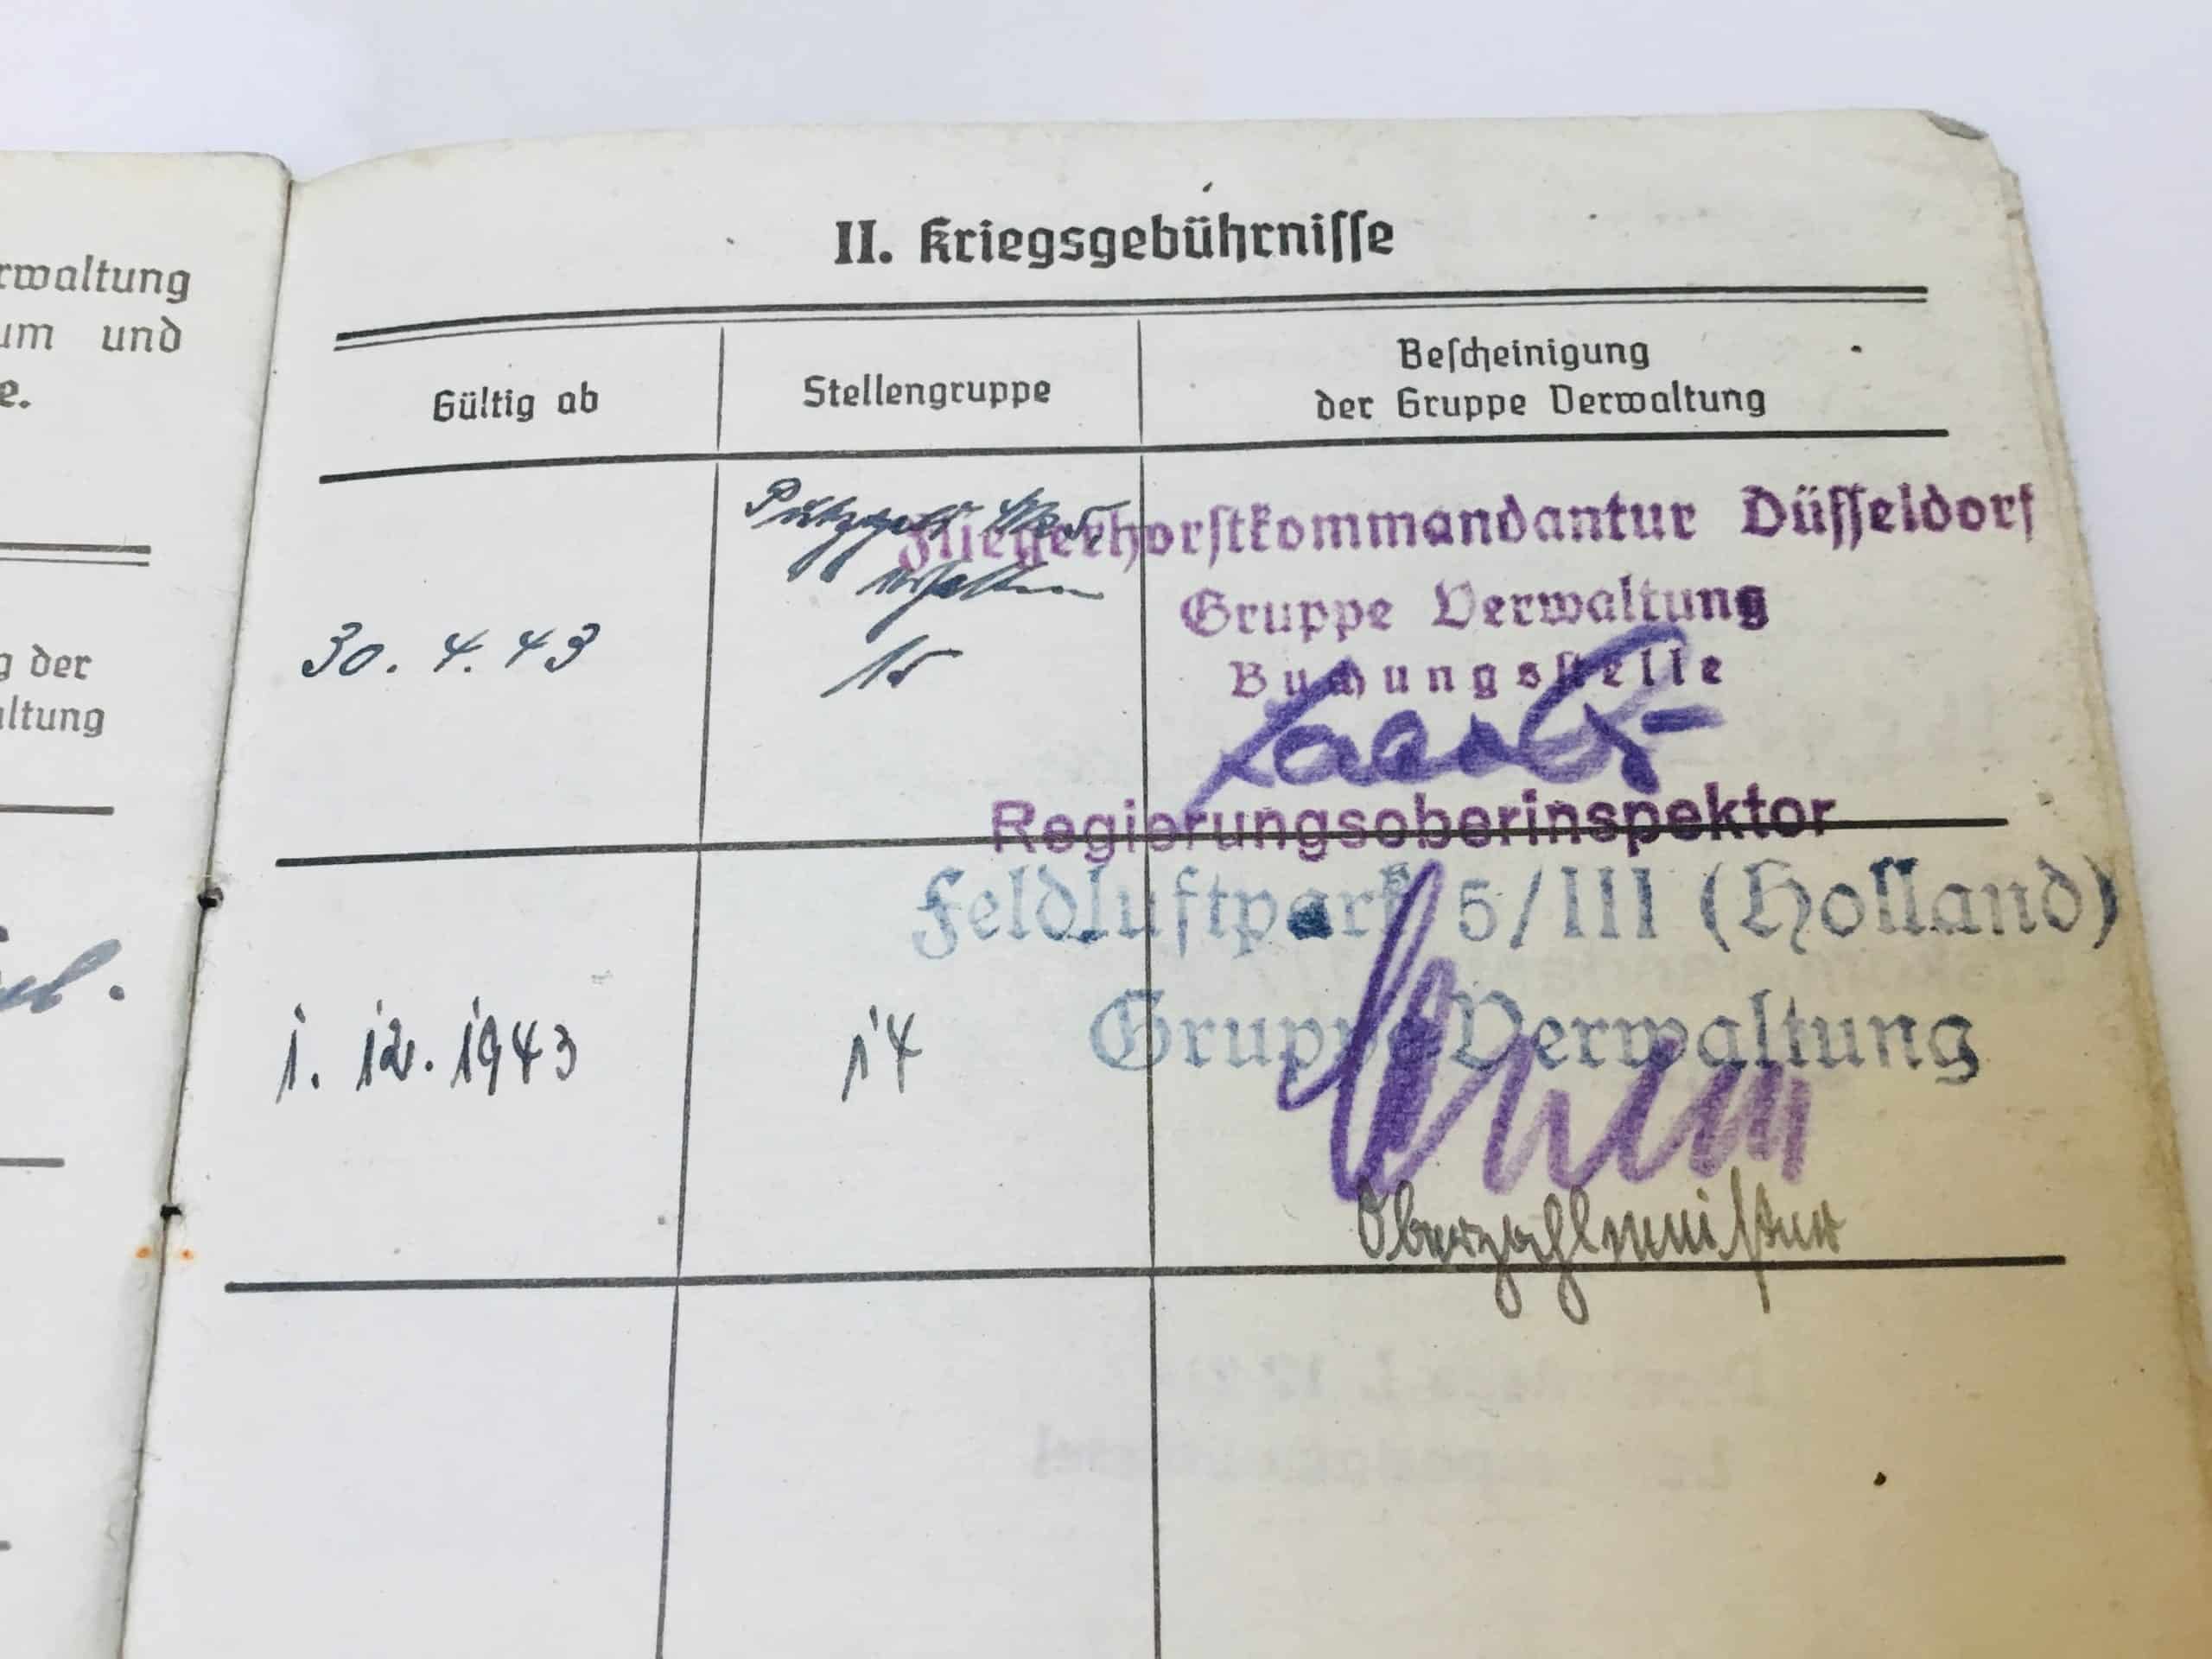 rwaltung
um und
e.
g der
altung
II. Kriegsgebührnisse
Gültig ab
Stellengruppe
Bescheinigung
der Gruppe Verwaltung
Putzgeld
erhalten
30. 4. 43
15
Fliegerhorstkommandantur Düsseldorf
Gruppe Verwaltung
Buchungsstelle
Regierungsoberinspektor
1. 12. 1943
14
Feldluftpark 5/III (Holland)
Gruppe Verwaltung
Oberzahlmeister